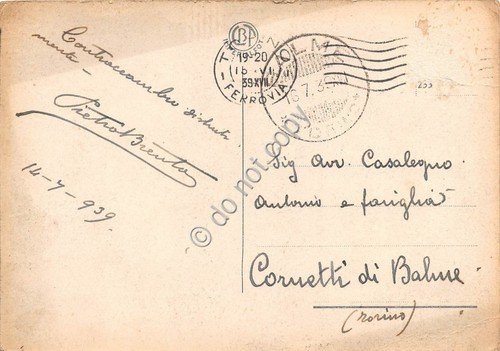 Controccambio distinta
mente -
Pietro Brento
14-7-939.
19-20
39 XVII
FERROVIA
Sig Avv. Casalegno
Antonio e famiglia
Cornetti di Balme
(Torino)
233
© do not copy